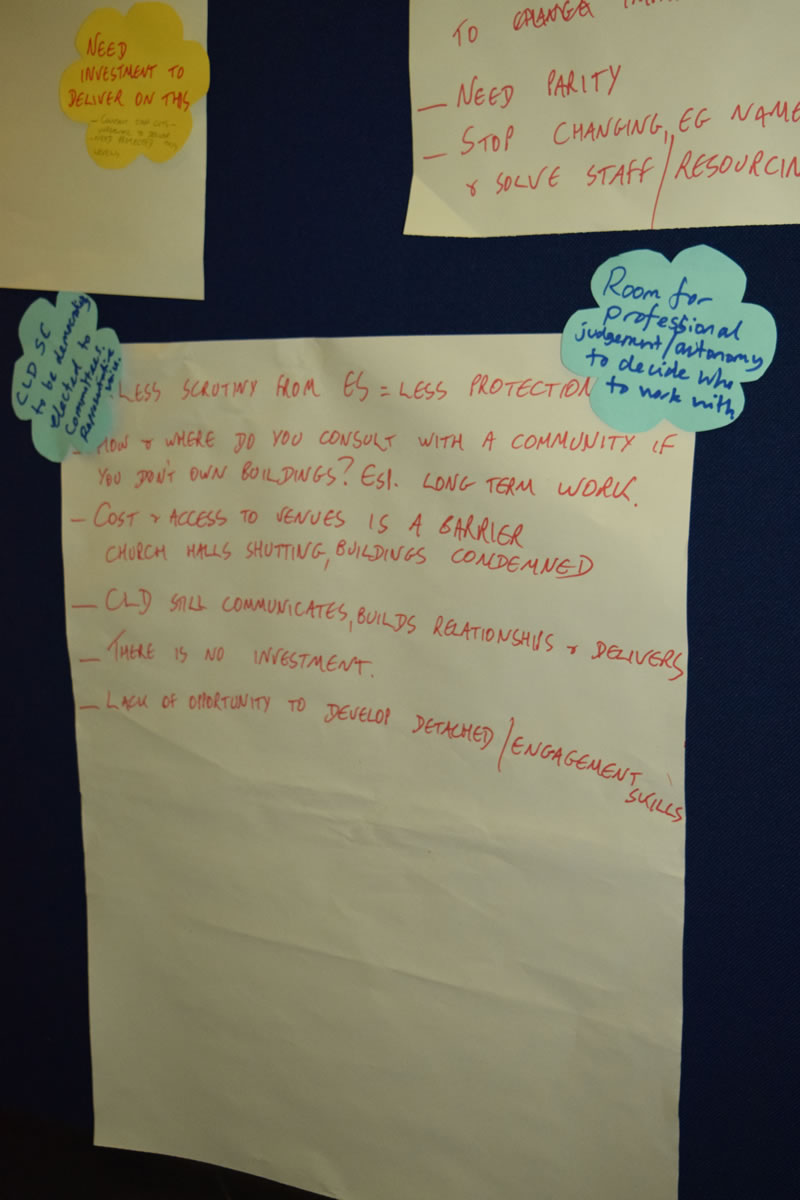 NEED
INVESTMENT TO
DELIVER ON THIS
- CURRENT STAFF CUTS -
TO DELIVER
- NEED PROTECTED
LEVELS
TO CHANGE
— NEED PARITY
— STOP CHANGING, EG NAME
& SOLVE STAFF / RESOURCIN
CLD SC
to be democratically
elected to
Committees.
Representative
voice.
Room for
professional
judgement/autonomy
to decide who
to work with
LESS SCRUTINY FROM ES = LESS PROTECTION
- HOW & WHERE DO YOU CONSULT WITH A COMMUNITY IF
YOU DON'T OWN BUILDINGS? ESP. LONG TERM WORK.
- COST & ACCESS TO VENUES IS A BARRIER
CHURCH HALLS SHUTTING, BUILDINGS CONDEMNED
— CLD STILL COMMUNICATES, BUILDS RELATIONSHIPS & DELIVERS
— THERE IS NO INVESTMENT.
— LACK OF OPPORTUNITY TO DEVELOP DETACHED / ENGAGEMENT
SKILLS